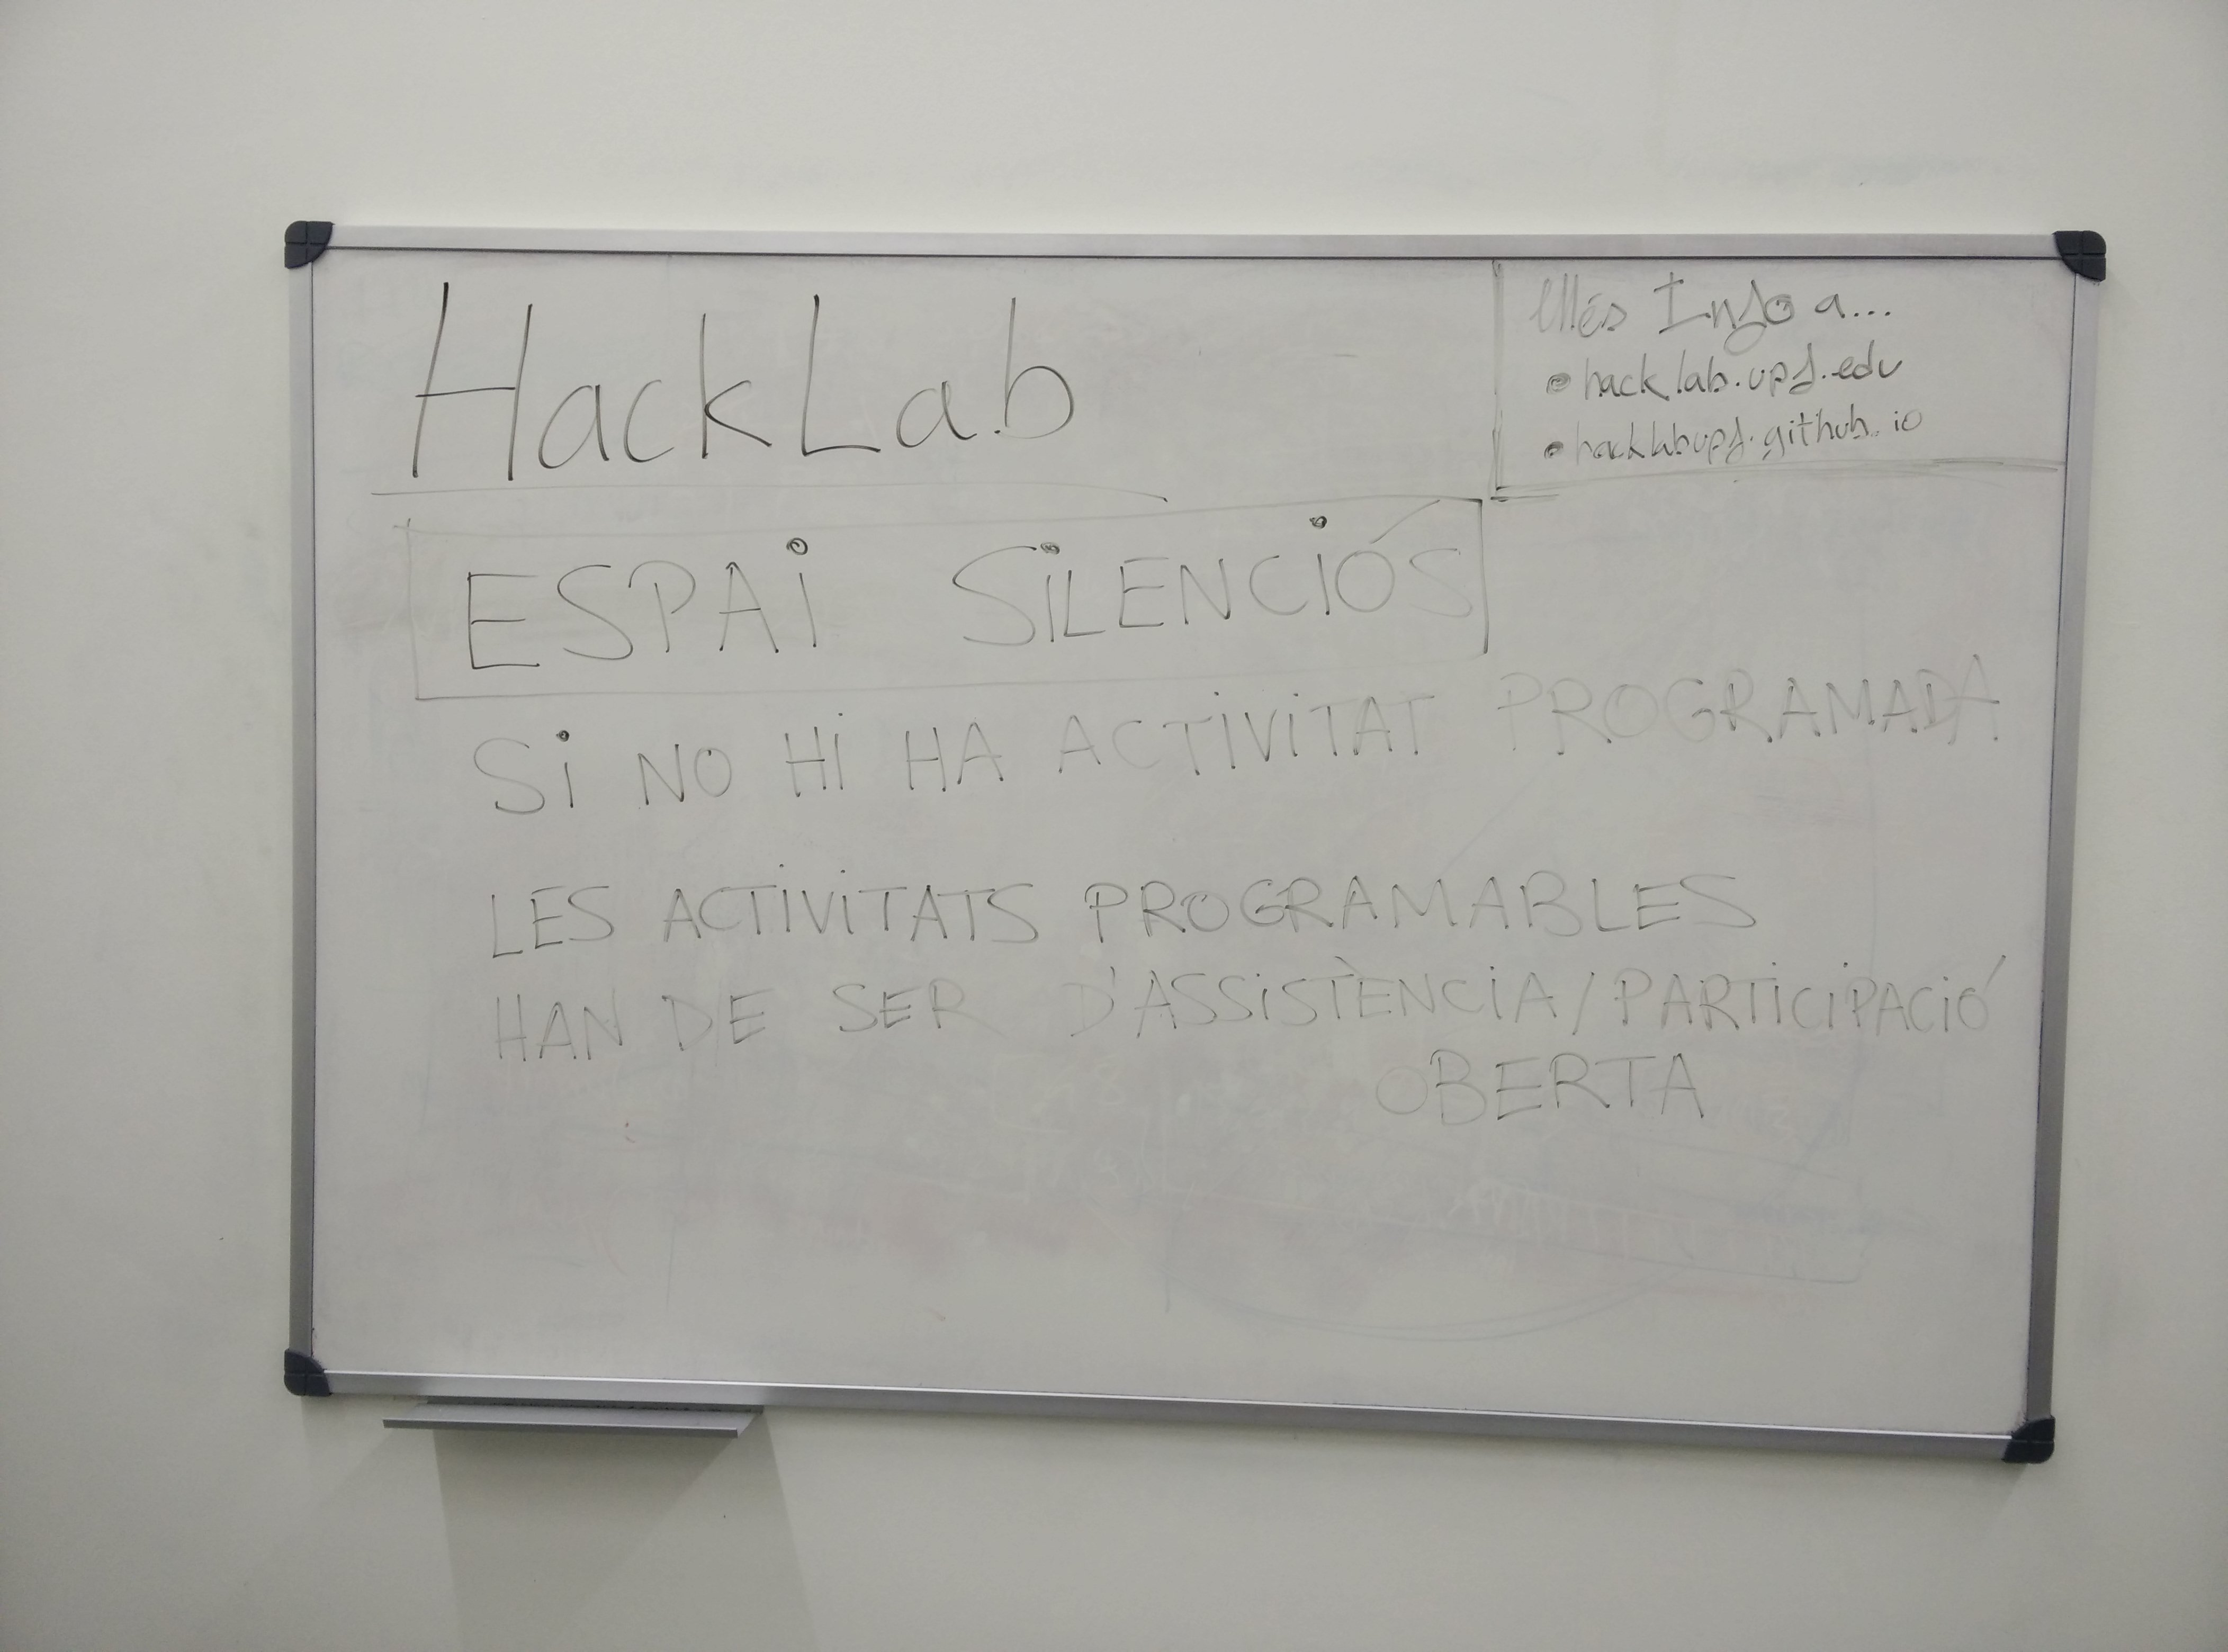 HackLab
Més Info a...
• hacklab.upf.edu
• hacklabupf.github.io
ESPAi SiLENCiÓS
Si NO Hi HA ACTiViTAT PROGRAMADA
LES ACTiViTATS PROGRAMABLES
HAN DE SER D'ASSiSTÈNCiA/PARTiCiPACiÓ
OBERTA